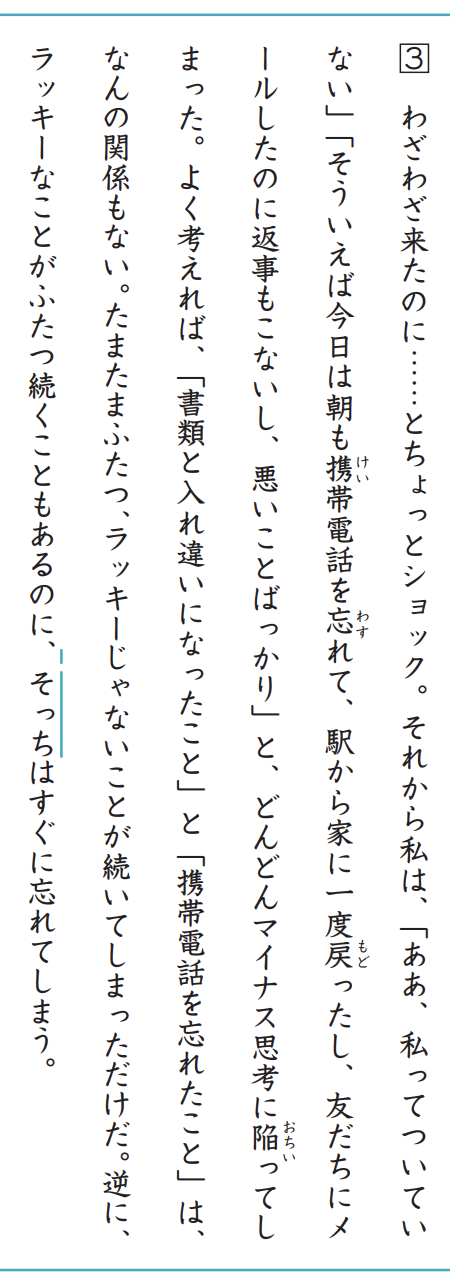 3 わざわざ来たのに……とちょっとショック。それから私は、「ああ、私ってついてい
ない」「そういえば今日は朝も携帯電話を忘れて、駅から家に一度戻ったし、友だちにメ
ールしたのに返事もこないし、悪いことばっかり」と、どんどんマイナス思考に陥ってし
まった。よく考えれば、「書類と入れ違いになったこと」と「携帯電話を忘れたこと」は、
なんの関係もない。たまたまふたつ、ラッキーじゃないことが続いてしまっただけだ。逆に、
ラッキーなことがふたつ続くこともあるのに、そっちはすぐに忘れてしまう。
けい
わす
もど
おちい